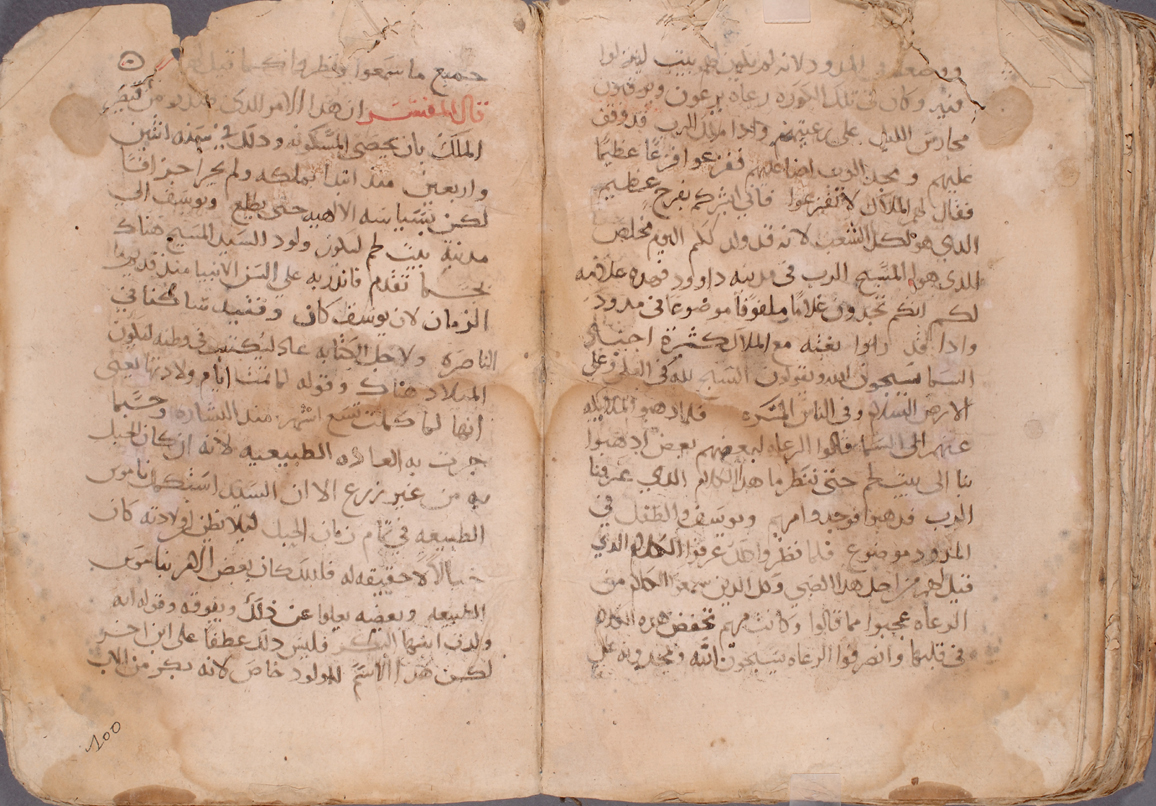 ووضعته في المدود لانه لم يكن لهم بيت لينزلوا
فيه وكان في تلك الكوره رعاه يرعون ويرقدون
محارس الليل على رعيتهم واذا ملاك الرب قد وقف
عليهم ومجد الرب اضا عليهم ففزعوا فزعًا عظيمًا
فقال لهم الملاك لا تفزعوا فاني ابشركم بفرح عظيم
الذي هو لكل الشعب لانه قد ولد لكم اليوم مخلص
الذي هو المسيح الرب في مدينه داوود فهذه علامه
لكم انكم تجدون غلامًا ملفوفًا موضوعًا في مدود
واذا قد راوا بغته مع الملاك كثرة اجناد
السما يسبحون الله ويقولون السبح لله في العلا وعلى
الارض السلام وفي الناس المسره فلما ذهبوا الملايكه
عنهم الى السما قالوا الرعاه لبعضهم بعض اذهبوا
بنا الى بيت لحم حتى ننظر ما هذا الكلام الذي عرفنا
الرب فذهبوا فوجدوا مريم ويوسف والطفل في
المدود موضوع فلما نظروا عرفوا الكلام الذي
قيل لهم من اجل هذا الصبي وكل الذين سمعوا الكلام من
الرعاه عجبوا مما قالوا وكانت مريم تحفض هذه الكلام
في قلبها وانصرفوا الرعاه يسبحون الله ويمجدونه على
جميع ما سمعوا ونظروا كما قيل لهم
قال المفسر ان هذا الامر الذي من قيصر
الملك بان يحصى المسكونه وذلك في سنه اثنين
واربعين منذ ابتدا تملكه ولم يجر جزافًا
لكن بسياسه الالهيه حتى يطلع ويوسف الى
مدينة بيت لحم ليكون ولود السيد المسيح هناك
بحسبما تقدم فانذر به على السن الانبيا منذ قديم
الزمان لان يوسف كان وقتيد ساكنا في
الناصره ولاجل الكتابه عاد ليكتتب في وطنه ليكون
الميلاد هناك وقوله لما تمت ايام ولادتها يعني
انها لما كملت تسع اشهر منذ البشاره وحسبما
جرت به العاده الطبيعيه لانه ان كان الحبل
به من غير زرع الا ان السيد استكمل ناموس
الطبيعه في تمام زمان الحبل ليلا يظن ان ولادته كان
خيالًا لا حقيقه له فلذلك كان بعض الامر بناموس
الطبيعه وبعضه يعلوا عن ذلك ويفوقه وقوله انه
ولدت ابنها البكر فليس ذلك عطفًا على ابن اخر
لكن هذا الاسم للمولود خاص لانه بكر من الاب
100